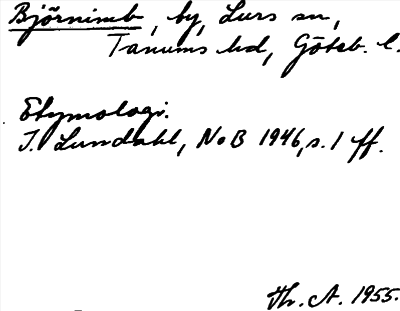 Björnimb, by, Lurs sn,
Tanums hd, Göteb. l.
Etymologi.
I. Lundahl, NoB 1946, s. 1 ff.
Th. A. 1955.